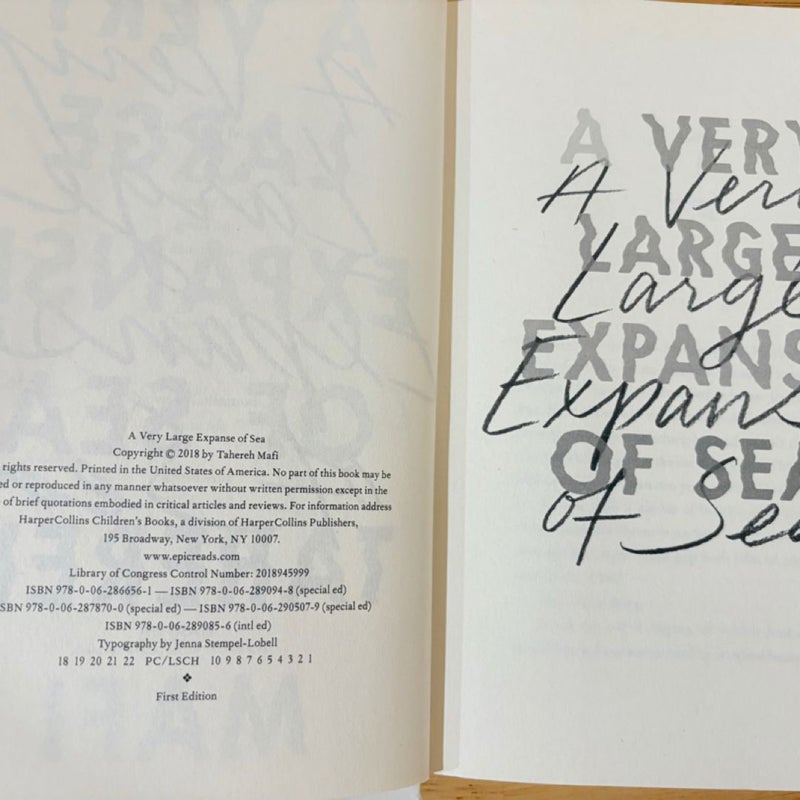 A Very Large Expanse of Sea
Copyright © 2018 by Tahereh Mafi
rights reserved. Printed in the United States of America. No part of this book may be
ed or reproduced in any manner whatsoever without written permission except in the
of brief quotations embodied in critical articles and reviews. For information address
HarperCollins Children's Books, a division of HarperCollins Publishers,
195 Broadway, New York, NY 10007.
www.epicreads.com
Library of Congress Control Number: 2018945999
ISBN 978-0-06-286656-1 — ISBN 978-0-06-289094-8 (special ed)
SBN 978-0-06-287870-0 (special ed) — ISBN 978-0-06-290507-9 (special ed)
ISBN 978-0-06-289085-6 (intl ed)
Typography by Jenna Stempel-Lobell
18 19 20 21 22 PC/LSCH 10 9 8 7 6 5 4 3 2 1
❖
First Edition
A VERY
A Ver
LARGE
Large
EXPANS
Expans
OF SEA
of Sea